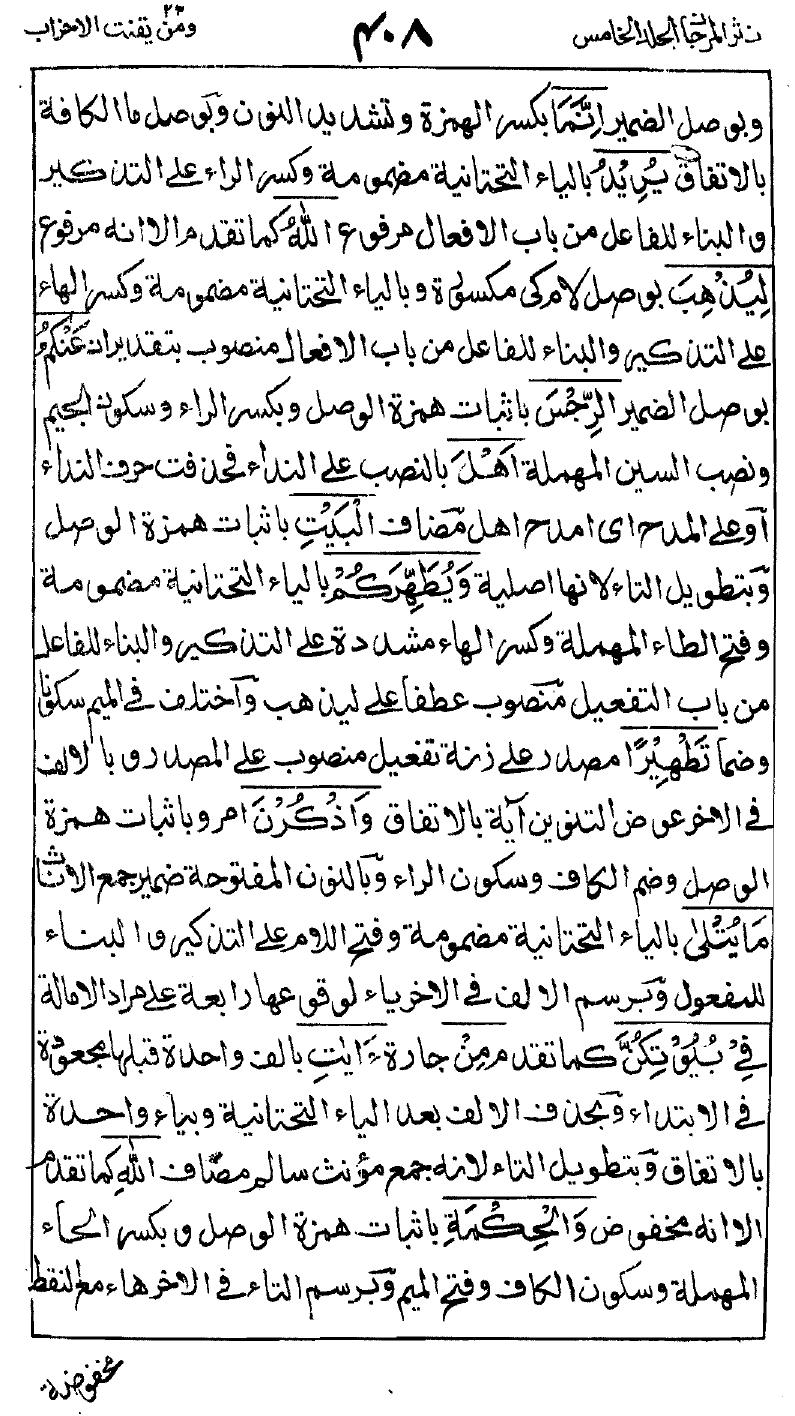 نثر المرجان الجلد الخامس
۴۰۸
ومن يقنت ۲۲ الاحزاب
وبوصل الضمير اِنَّمَا بكسر الهمزة وتشديد النون وبوصل ما الكافة
بالاتفاق يُرِيْدُ بالياء التحتانية مضمومة وكسر الراء على التذكير
والبناء للفاعل من باب الافعال مرفوع اللّٰهُ كما تقدم الا انه مرفوع
لِيُذْهِبَ بوصل لام كى مكسورة وبالياء التحتانية مضمومة وكسر الهاء
على التذكير والبناء للفاعل من باب الافعال منصوب بتقدير ان عَنْكُمُ
بوصل الضمير الرِّجْسَ باثبات همزة الوصل وبكسر الراء وسكون الجيم
ونصب السين المهملة اَهْلَ بالنصب على النداء فحذفت حرف النداء
اوعلى المدح اى امدح اهل مضاف الْبَيْتِ باثبات همزة الوصل
وبتطويل التاء لانها اصلية وَيُطَهِّرَكُمْ بالياء التحتانية مضمومة
وفتح الطاء المهملة وكسر الهاء مشددة على التذكير والبناء للفاعل
من باب التفعيل منصوب عطفا على ليذهب واختلف فى الميم سكونا
وضما تَطْهِيْرًا مصدر على زنة تفعيل منصوب على المصدر وبالالف
فى الاخر عوض التنوين آية بالاتفاق وَاذْكُرْنَ امر وباثبات همزة
الوصل وضم الكاف وسكون الراء وبالنون المفتوحة ضمير جمع الاناث
مَا يُتْلٰى بالياء التحتانية مضمومة وفتح اللام على التذكير والبناء
للمفعول وبرسم الالف فى الاخر ياء لوقوعها رابعة على مراد الامالة
فِيْ بُيُوْتِكُنَّ كما تقدم مِنْ جارة ءَايٰتِ بالف واحدة قبلها مجعودة
فى الابتداء وبحذف الالف بعد الياء التحتانية وبياء واحدة
بالاتفاق وبتطويل التاء لانه جمع مؤنث سالم مضاف اللّٰهِ كما تقدم
الا انه مخفوض وَالْحِكْمَةِ باثبات همزة الوصل وبكسر الحاء
المهملة وسكون الكاف وفتح الميم وبرسم التاء فى الاخر هاء مع النقط
مخفوضة